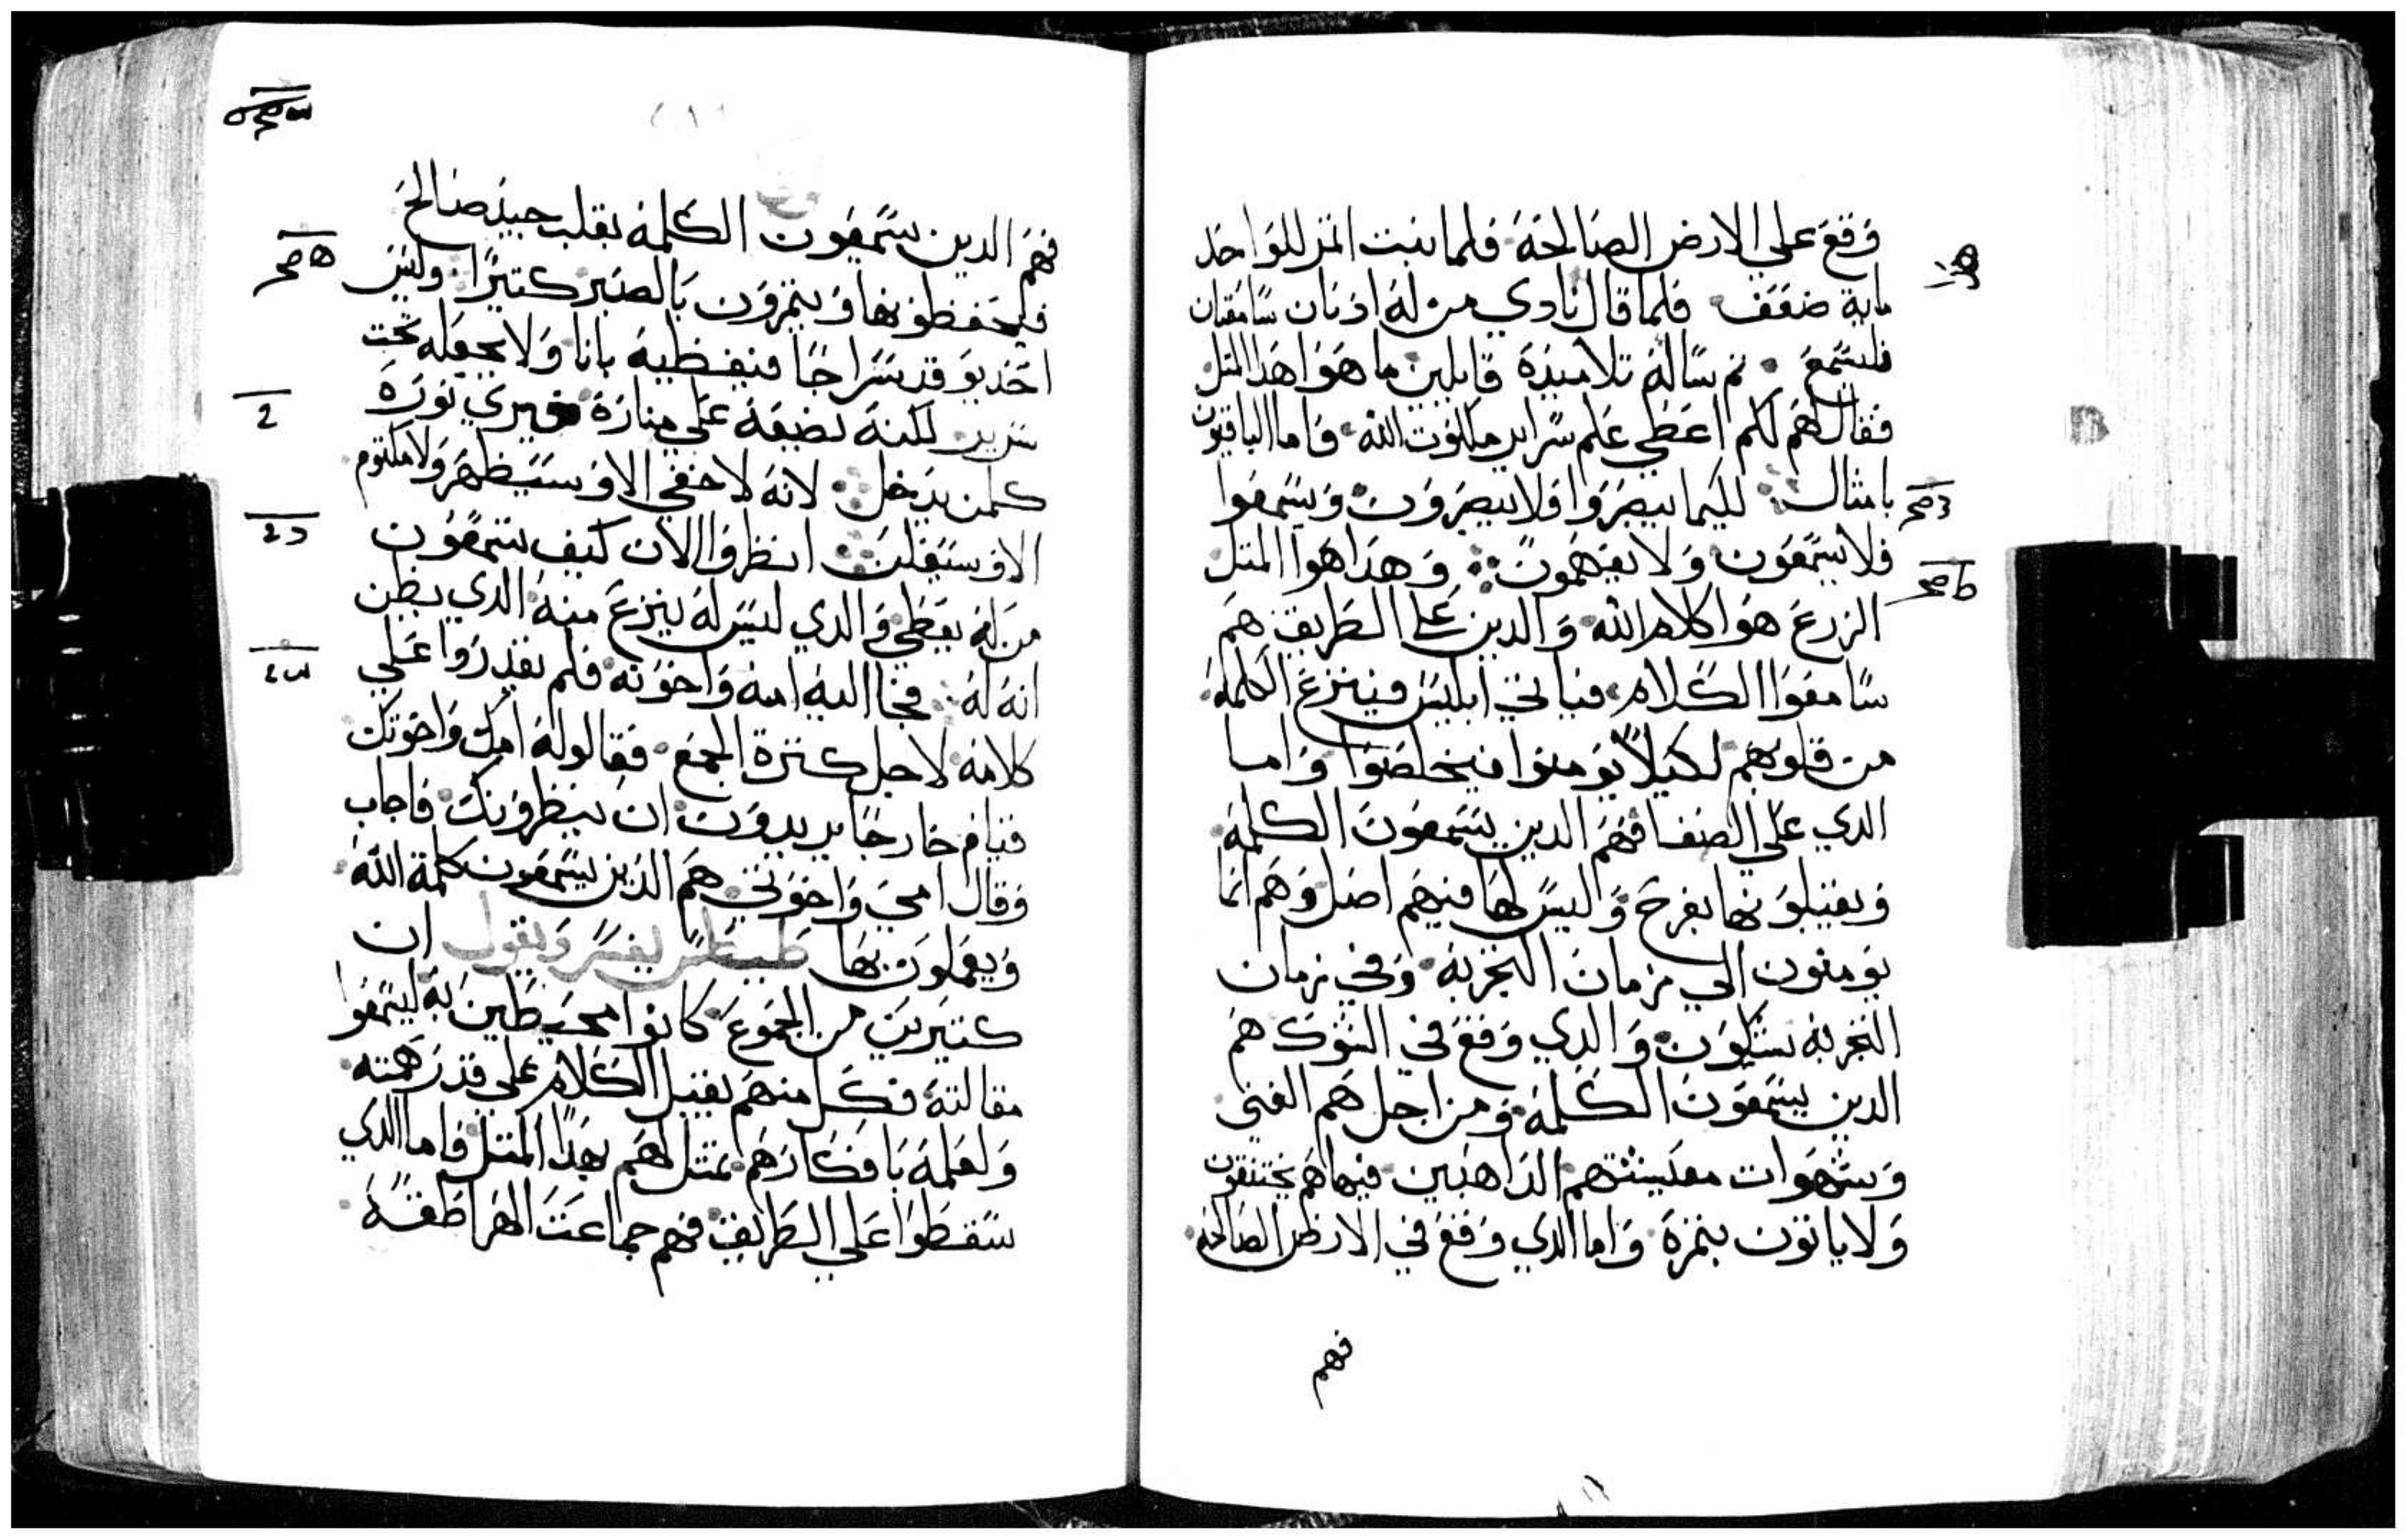 وقع علي الارض الصالحة فلما نبت اتمر للواحد
ماية ضعف فلما قال نادي من له ادنان سامعتان
فليستمع تم ساله تلاميذه قايلين ما هوا هدا المثل
فقال لهم لكم اعطي علم سراير ملكوت الله واما الباقيون
بامثال لليما يبصروا فلا يبصرون ويستمعوا
فلا يستمعون ولا يفهمون وهدا هوا المتل
الزرع هوا كلام الله والدين علي الطريق هم
سامعوا الكلام فياتي ابليس فينزع الكلمة
من قلوبهم لكيلا يومنوا فيخلصوا واما
الدي علي الصفا فهم الدين يستمعون الكلمة
ويقبلونها بفرح واليس لها فيهم اصل وهم انما
يومنون الي زمان التجربه وفي زمان
التجربه يشكون والدي وقع في الشوك هم
الدين يستمعون الكلمة ومن اجل هم الغنى
وشهوات معيشتهم الداهبين فيها هم يختنقون
ولا ياتون بتمرة واما الدي وقع في الارظ الصالحه
فهم
فهم الدين يستمعون الكلمة بقلب جيد صالح
فيحفظونها ويتمرون بالصبر كتيرا وليس
احد يوقد سراجا فيغطيه بانا ولا يجعله تحت
سرير لكنه يضعه علي منارة فيري نوره
كلمن يدخل لانه لا خفي الا وسيظهر ولا مكتوم
الا وسيعلن انظروا الان كيف تستمعون
من له يعطي والدي ليس له ينزع منه الدي يظن
انه له فجا اليه امه واخوته فلم يقدروا علي
كلامه لاجل كترة الجمع فقالوله امك واخوتك
قيام خارجا يريدون ان ينظرونك فاجاب
وقال امي واخوتي هم الدين يستمعون كلمة الله
ويعملون بها طيطس يفسر ويقول ان
كتيرين من الجموع كانوا محيطين به ليستمعوا
مقالته فكل منهم يقبل الكلام علي قدر همته
ولعلمه بافكارهم يمتل لهم بهدا المتل فاما الدي
سقطوا علي الطريق فهم جماعت الهراطقة